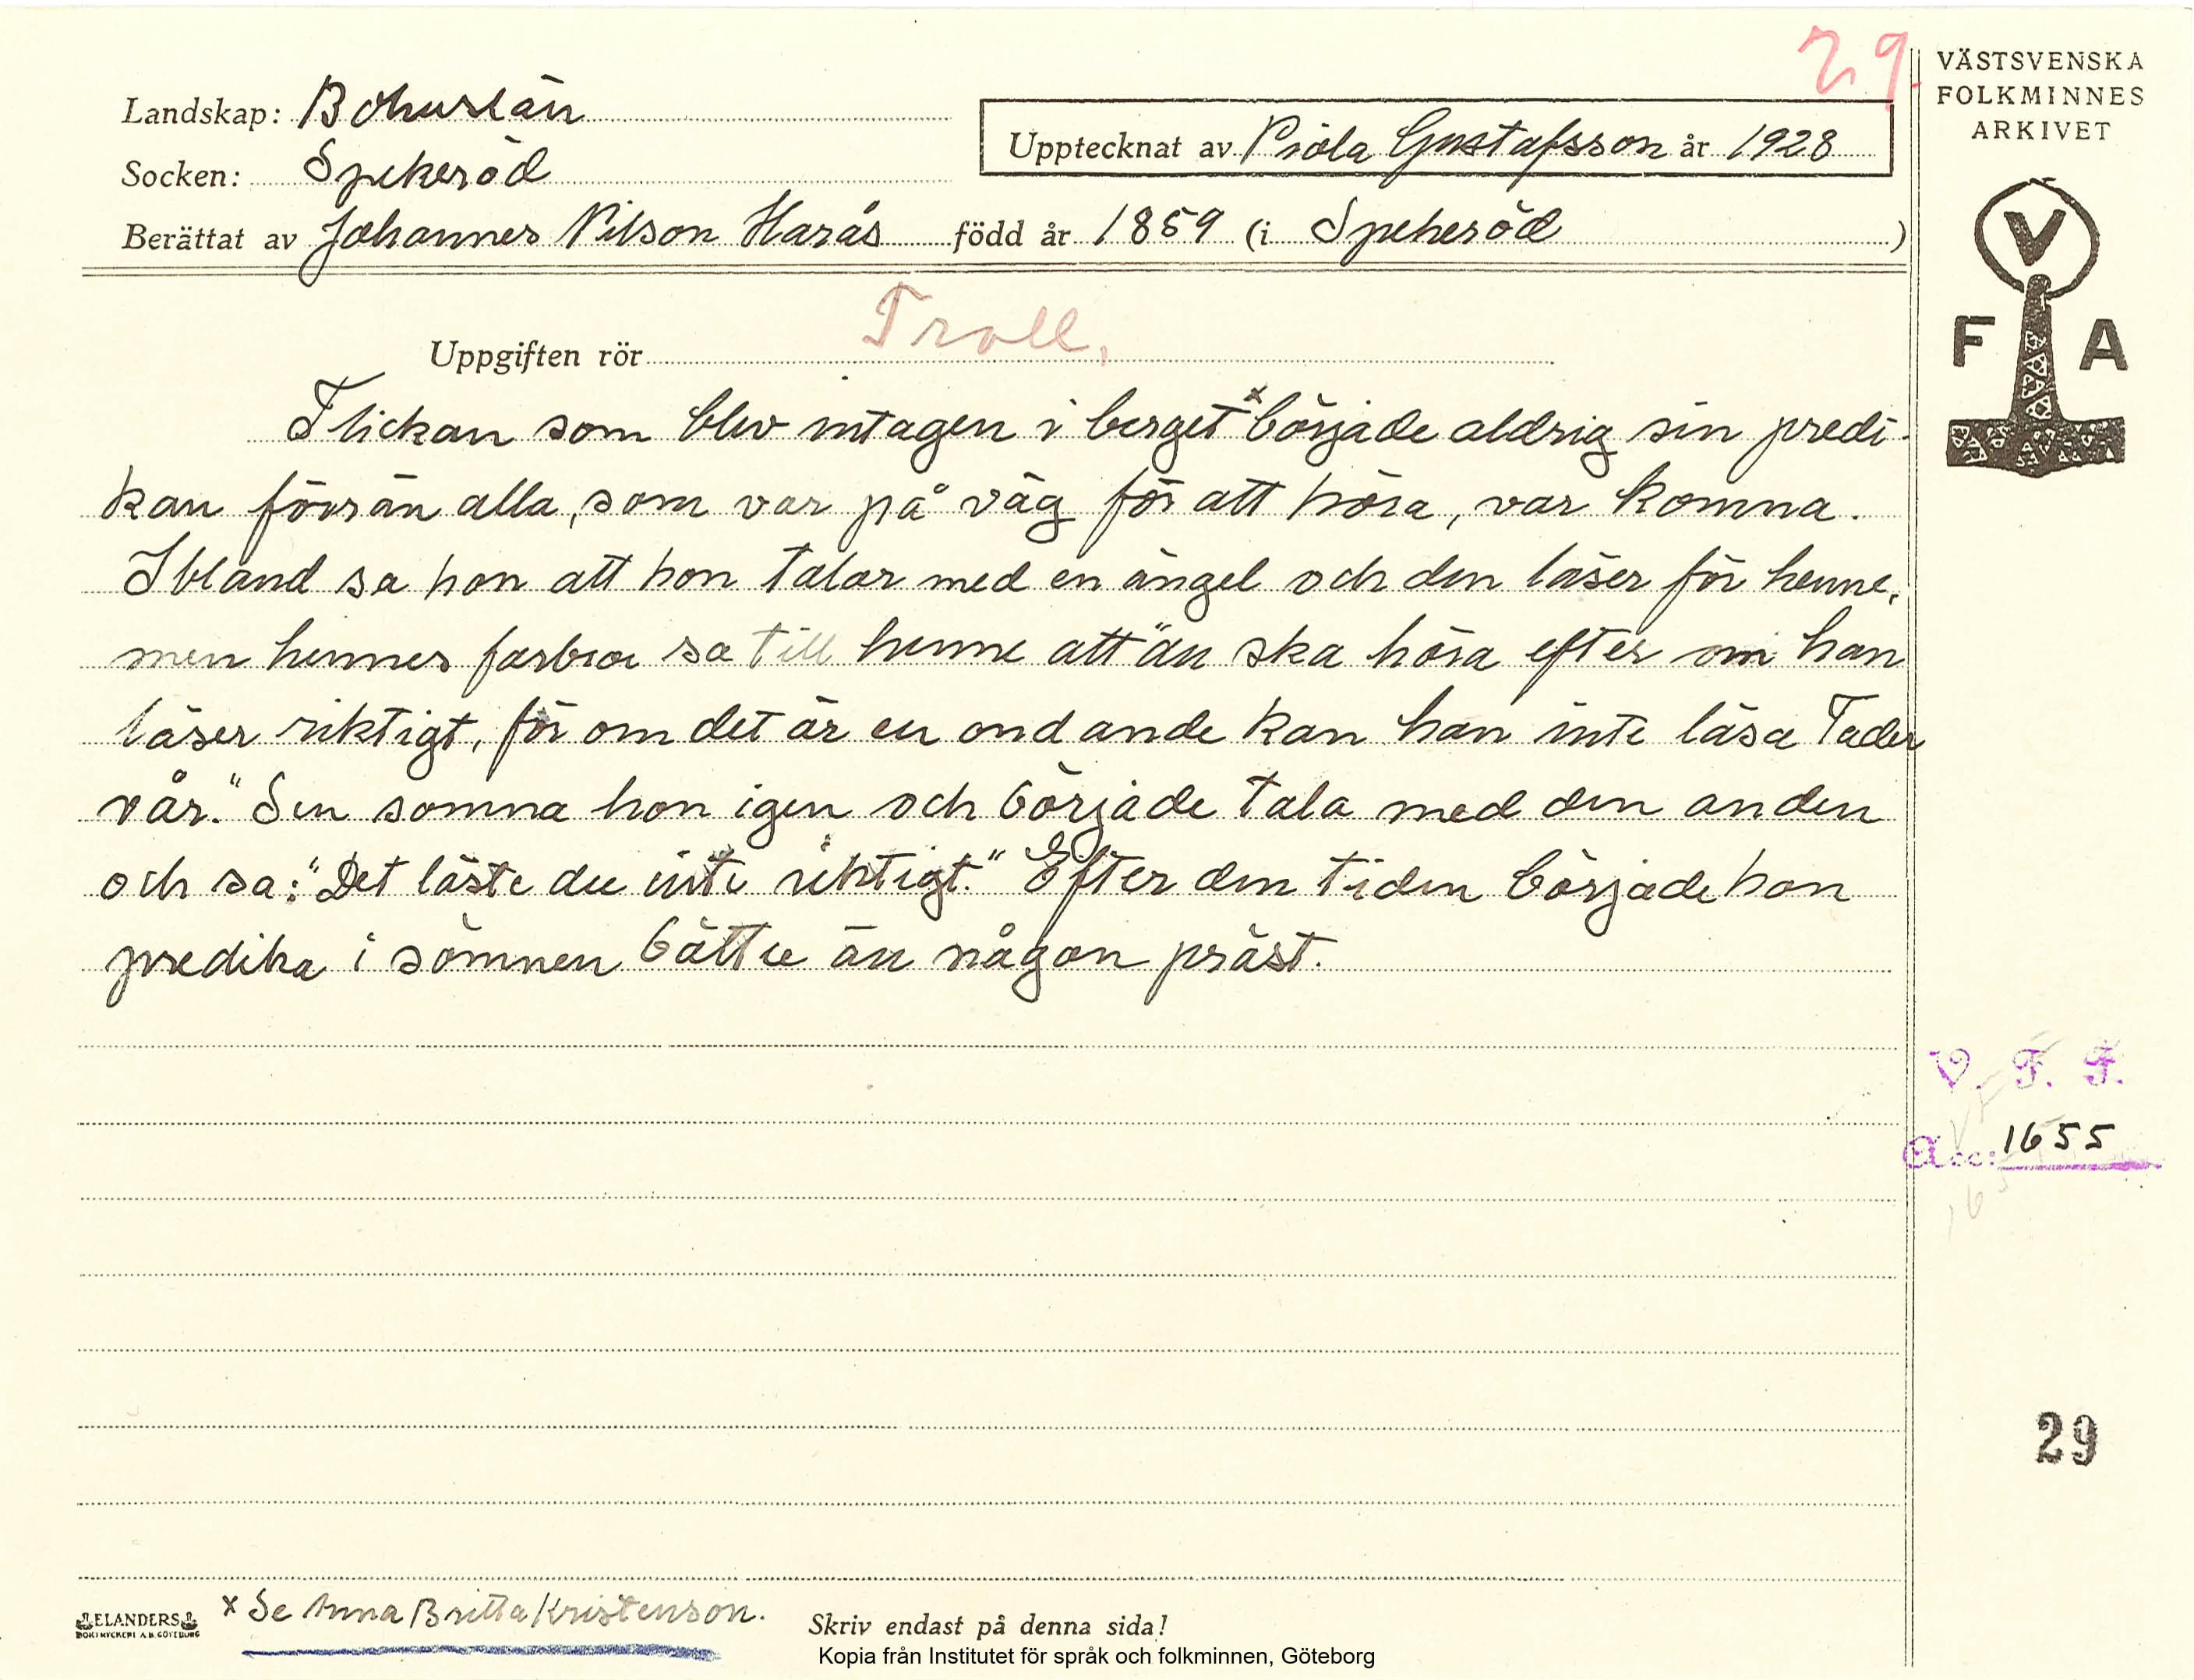 29
VÄSTSVENSKA
FOLKMINNES
ARKIVET
Landskap: Bohuslän
Upptecknat av Viola Gustafsson år 1928
Socken: Spekeröd
Berättat av Johannes Nilson Harås född år 1859 (i Spekeröd)
V
F A
Uppgiften rör Troll.
Flickan som blev intagen i berget x började aldrig sin predi-
kan förrän alla, som var på väg för att höra, var komna.
Ibland sa hon att hon talar med en ängel och den läser för henne,
men hennes farbror sa till henne att "du ska höra efter om han
läser riktigt, för om det är en ond ande kan han inte läsa Fader
vår." Sen somna hon igen och började tala med den anden
och sa: "Det läste du inte riktigt." Efter den tiden började hon
predika i sömnen bättre än någon präst.
V. F. F.
Acc: 1655
29
ELANDERS
BOKTRYCKERI A.B. GÖTEBORG
x Se Anna Britta Kristenson.
Skriv endast på denna sida!
Kopia från Institutet för språk och folkminnen, Göteborg